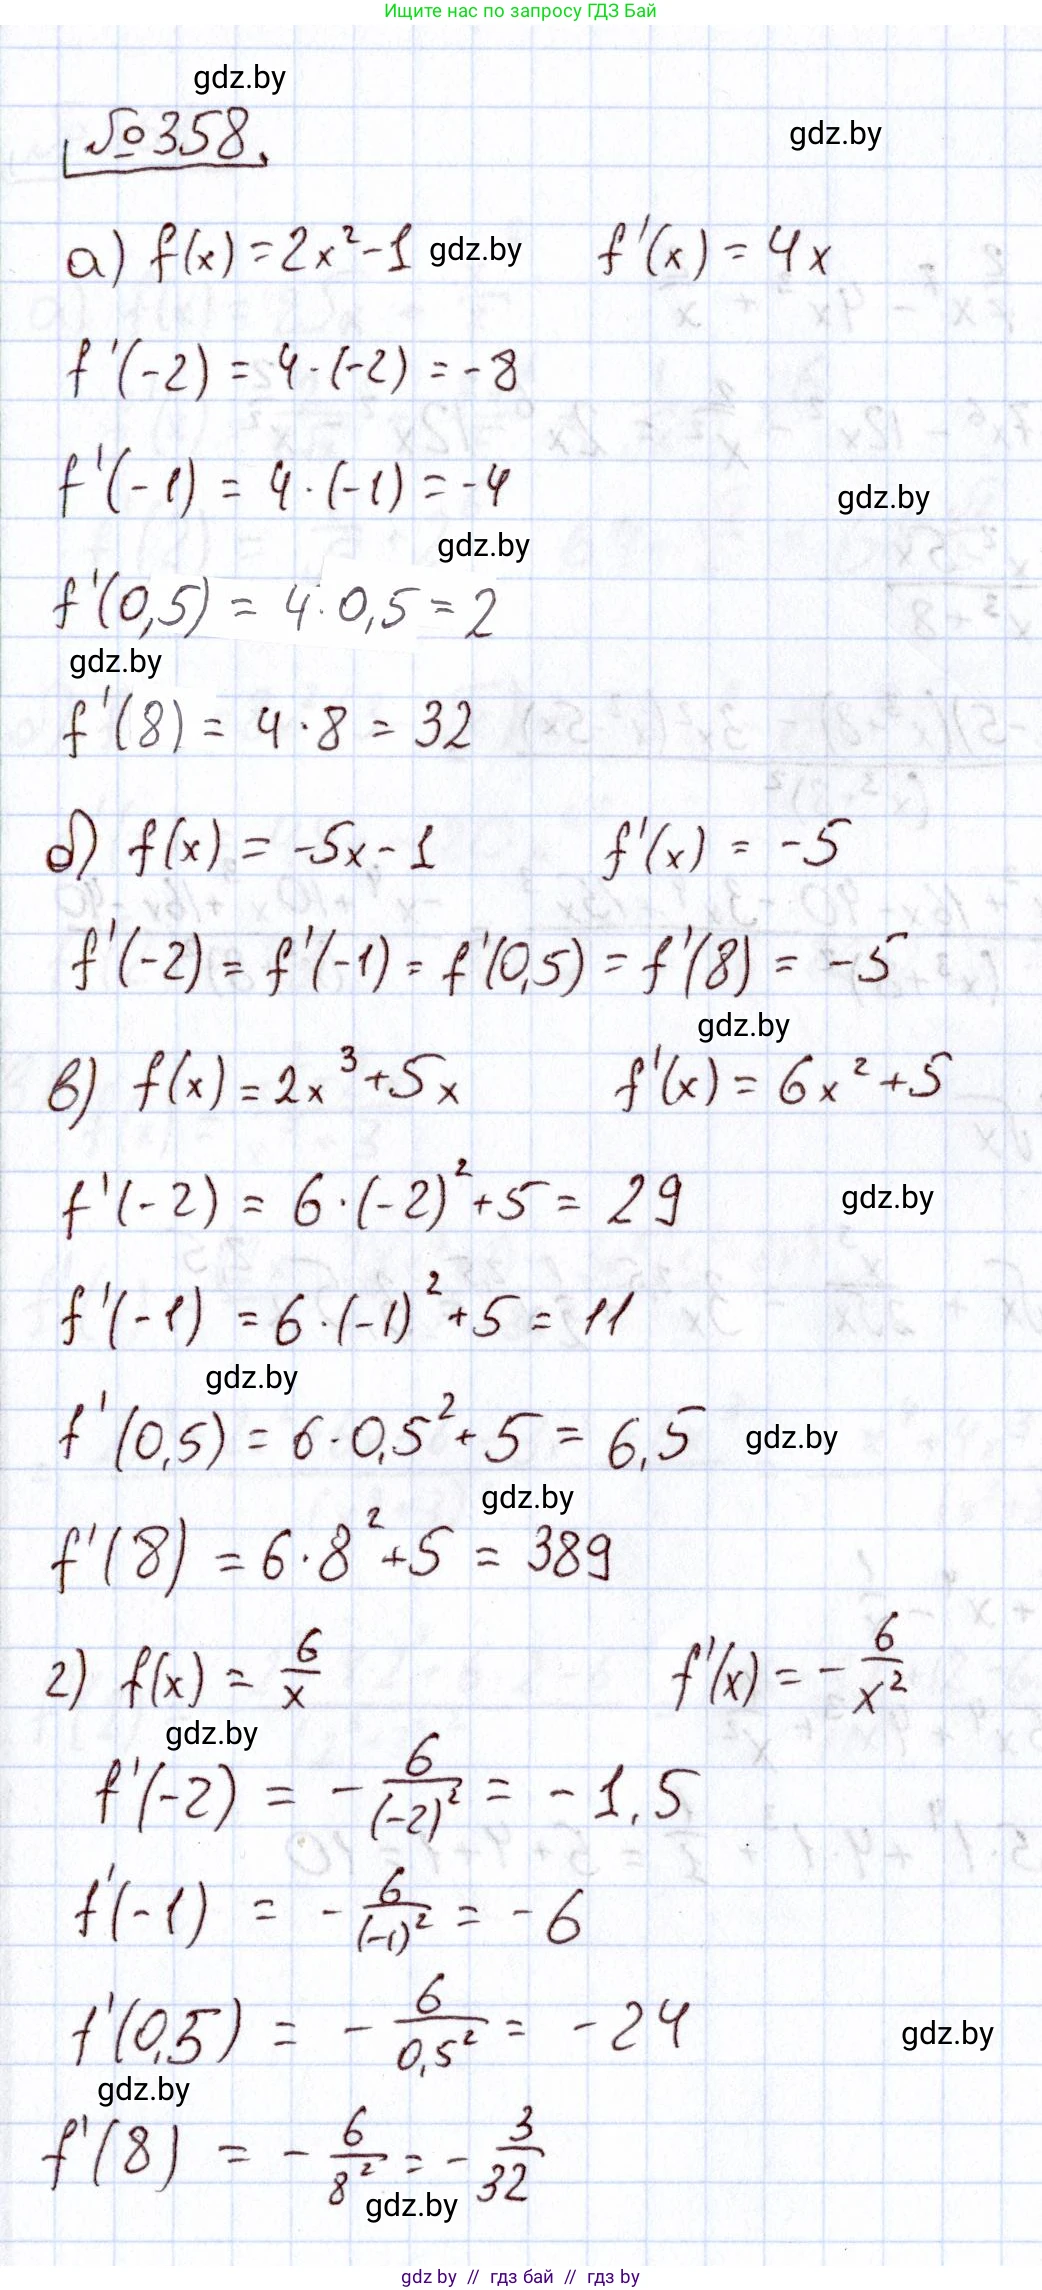 Ищите нас по запросу ГДЗ Бай
gdz.by
№358.
gdz.by
а) f(x) = 2x² - 1 gdz.by f'(x) = 4x
f'(-2) = 4·(-2) = -8
f'(-1) = 4·(-1) = -4
gdz.by
gdz.by
f'(0,5) = 4·0,5 = 2
gdz.by
f'(8) = 4·8 = 32
б) f(x) = -5x - 1 f'(x) = -5
f'(-2) = f'(-1) = f'(0,5) = f'(8) = -5
gdz.by
в) f(x) = 2x³ + 5x f'(x) = 6x² + 5
f'(-2) = 6·(-2)² + 5 = 29 gdz.by
f'(-1) = 6·(-1)² + 5 = 11
gdz.by
f'(0,5) = 6·0,5² + 5 = 6,5 gdz.by
gdz.by
f'(8) = 6·8² + 5 = 389
г) f(x) = 6/x f'(x) = -6/x²
gdz.by
f'(-2) = -6/(-2)² = -1,5
f'(-1) = -6/(-1)² = -6
f'(0,5) = -6/0,5² = -24 gdz.by
gdz.by
f'(8) = -6/8² = -3/32
gdz.by
gdz by // гдз бай // гдз by